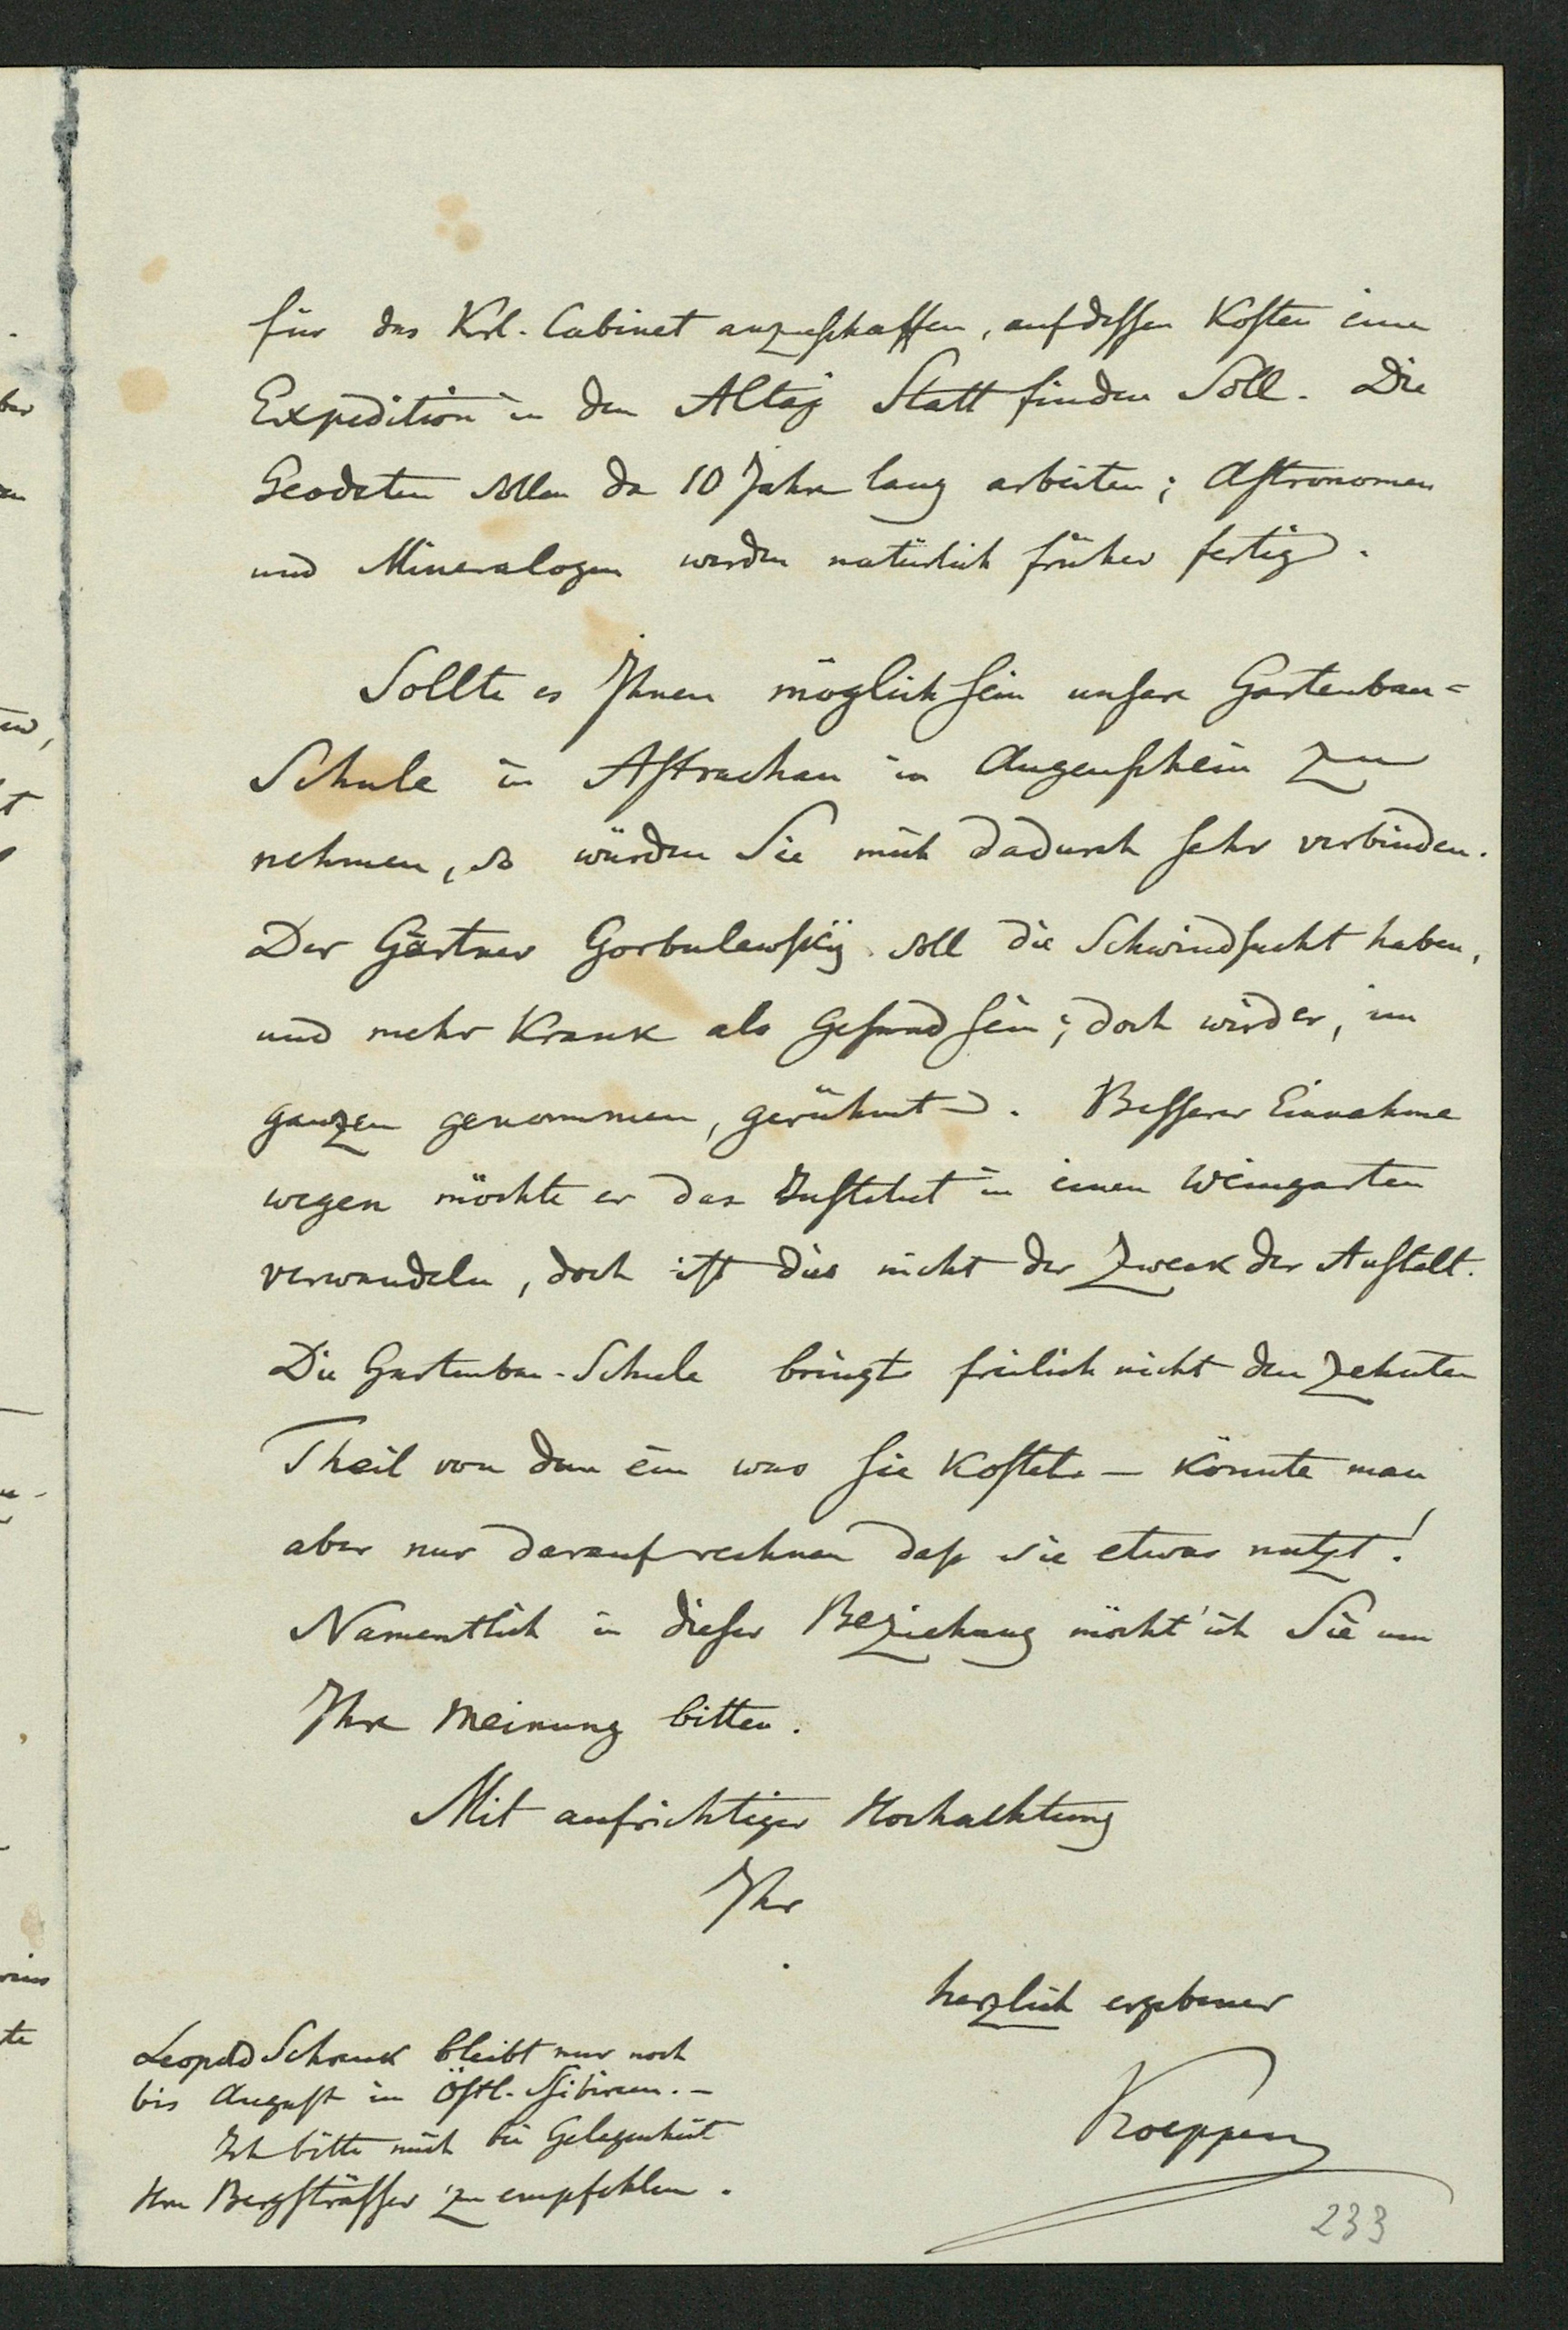 für das Krl. Cabinet anzuschaffen, auf dessen Kosten eine
Expedition in den Altaj Statt finden Soll. Die
Geodäten sollen da 10 Jahre lang arbeiten; Astronomen
und Mineralogen werden natürlich früher fertig.
Sollte es Ihnen möglich sein unsere Gartenbau=
Schule in Astrachan in Augenschein zu
nehmen, so würden Sie mich dadurch sehr verbinden.
Der Gärtner Gorbulewskij soll die Schwindsucht haben,
und mehr Krank als gesund sein; doch wird er, im
ganzen genommen, gerühmt. Besserer Einnahme
wegen möchte er das Institut in einen Weingarten
verwandeln, doch ist dies nicht der Zweck der Anstalt.
Die Gartenbau-Schule bringt freilich nicht den zehnten
Theil von dem ein was sie Kostet — könnte man
aber nur darauf rechnen daß sie etwas nutzt!
Namentlich in dieser Beziehung möcht' ich Sie um
Ihre Meinung bitten.
Mit aufrichtiger Hochachtung
Ihr
herzlich ergebener
Koeppen
Leopold Schrenk bleibt nur noch
bis August im Östl. Sibirien. –
Ich bitte mich bei Gelegenheit
Hrn Bergsträsser zu empfehlen.
233